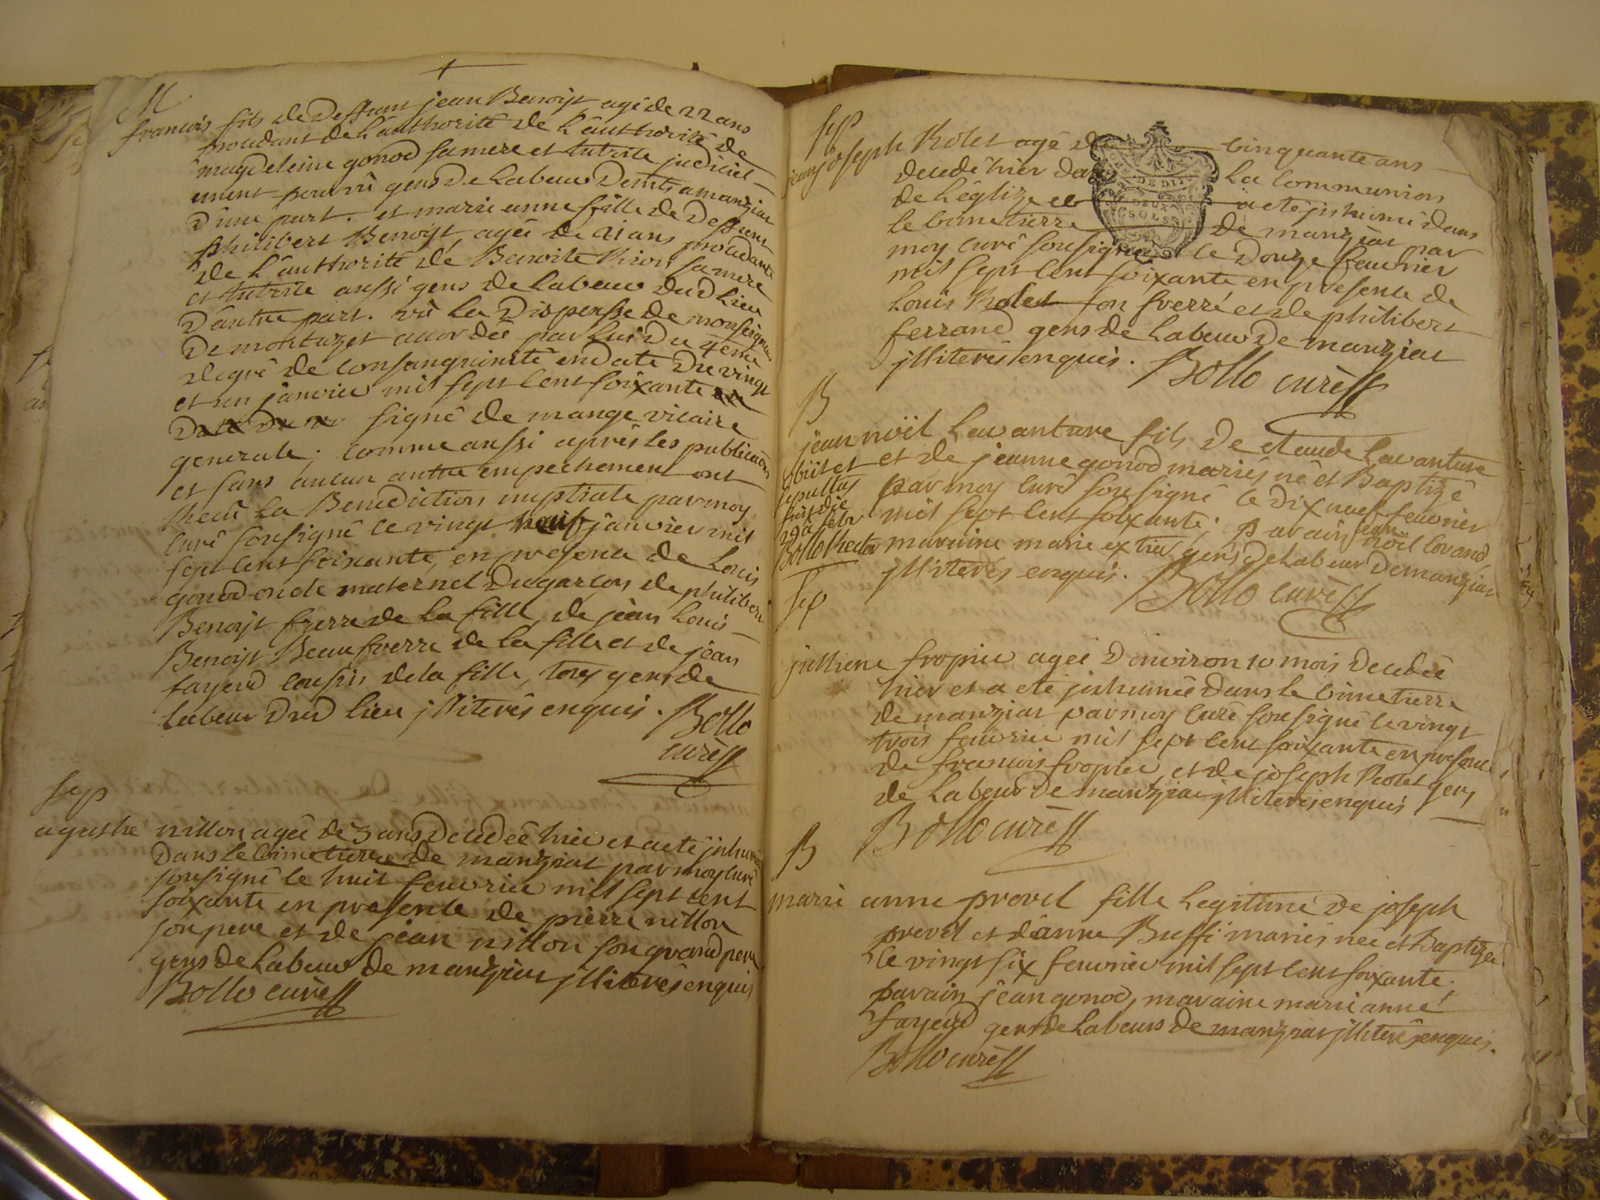 M
francois fils de Deffunt jean Benoist agé de 22 ans
procedant de l'authorité de l'authorité de
magdeleine gonod sa mere et tutrice judiciel-
ement pourvû gens de labeur demts a manziat
D'une part. et marie anne fille de Deffunt
philibert Benoist agée de 21 ans procedante
de l'authorité de Benoite Rion sa mere
et tutrice aussi gens de labeur dud lieu
D'autre part. vû la Dispense de monseigneur
De montazet accordée par lui Du 4eme
degré de consanguinité en date Du vingt
et un janvier mil sept cent soixante
signé de mange vicaire
generale; comme aussi aprés les publications
et sans aucun autre empechement ont
Recû la Benediction nuptiale par moy
curé sousigné le vingt neuf janvier mil
sept cent soixante, en presence de Louis
gonod oncle maternel du garcon de philibert
Benoist frerre de la fille, de jean Louis
Benoist Beaufrerre de la fille et de jean
fayend cousin de la fille, tous gens de
labeur dud lieu jlliterés enquis. Bollo
curé
sep
agathe nillon agée de 3 ans Decedeé hier et a eté jnhumée
Dans le Cimetierre de manziat par moy curé
sousigné le huit feuvrier mil sept cent
soixante en presence de pierre nillon
son pere et de jean nillon son grand pere
gens de labeur de manziat jlliterés enquis
Bollo curé
sep
jean joseph Rolet agé de cinquante ans
decedé hier dans la communion
de l'église et a eté jnhumé dans
le cimetierre de manziat par
moy curé sousigné le Douze feuvrier
mil sept cent soixante en presence de
Louis Rolet son frerré et de philibert
ferrand gens de labeur De manziat
jlliterés enquis. Bollo curé
B
jean noël Lavanture fils de claude Lavanture
et de jeanne gonod mariés né et Baptizé
par moy curé sousigné le dix neuf feuvrier
mil sept cent soixante; parain jean noël Covand,
maraine marie extrier gens de labeur De manziat
jlliterés enquis. Bollo curé
obiit et
sepultus
fuit die
febr
Bollo Rector
sep
jullienne fropier ageé D'environ 10 mois Decedeé
hier et a eté jnhumée Dans le cimetierre
de manziat par moy curé sousigné le vingt
trois feuvrier mil sept cent soixante en presence
de francois fropier et de joseph Rolet gens
de labeur De manziat jlliterés enquis
Bollo curé
B
marie anne provel fille Legitime de joseph
provel et d'anne Buffi mariés neé et Baptizée
le vingt six feuvrier mil sept cent soixante.
parain jean gonod, maraine marie anne
fayend gens de labeurs de manziat jlliterés enquis.
Bollo curé